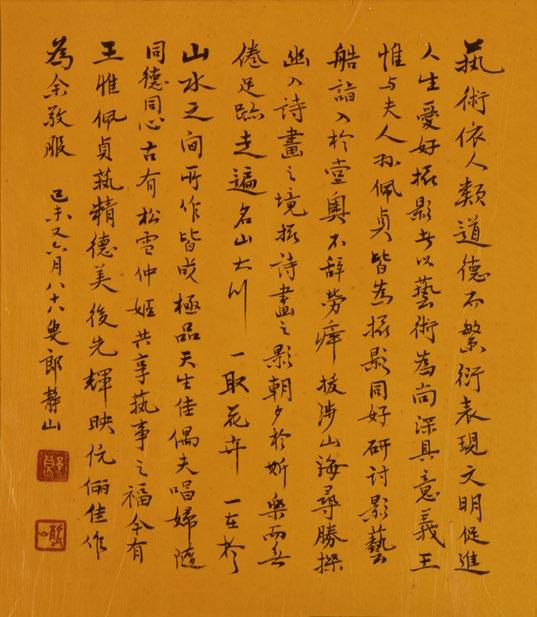 蓺術依人類道德而繁衍表現文明促進
人生愛好攝影者以藝術為尚深具意義王
惟与夫人孙佩貞皆為攝影同好研討影藝
艁詣入於堂奧不辭勞瘁拔涉山海尋勝探
幽入詩畫之境攝詩畫之影朝夕於斯樂而無
倦足跡走遍名山大川 一取花卉 一在於
山水之間所作皆成極品天生佳偶夫唱婦隨
同德同心古有松雪仲姬共享蓺事之福今有
王惟佩貞蓺精德美後先輝映伉儷佳作
為余敬服 己未又六月八十八叟郎靜山